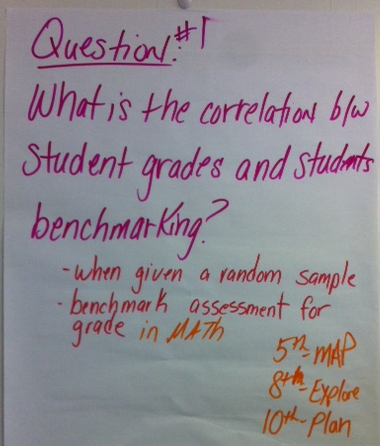 Question: #1
What is the correlation b/w
student grades and students
benchmarking?
- when given a random sample
- benchmark assessment for
grade in MATH
5th - MAP
8th - Explore
10th - Plan